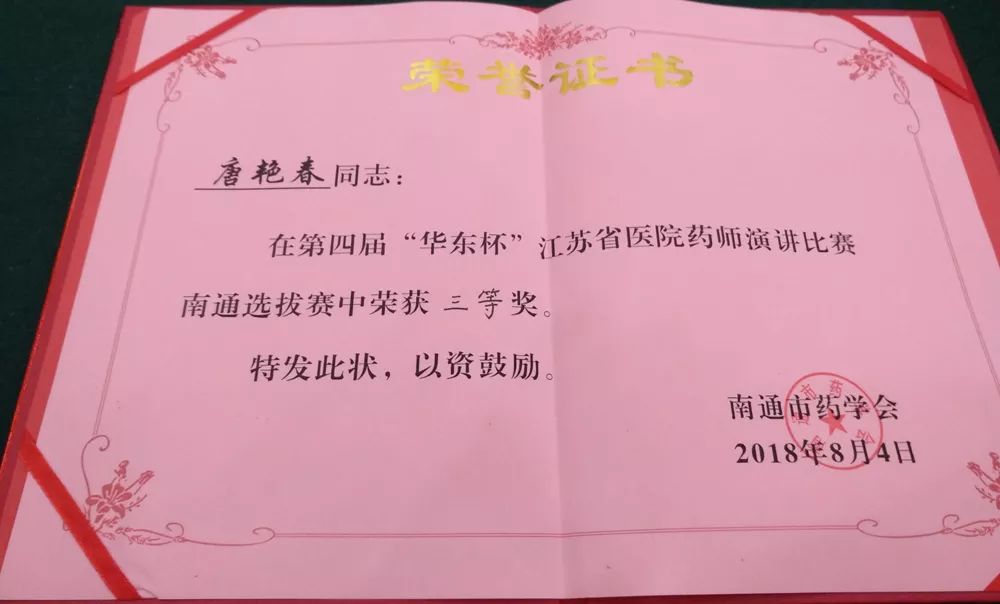 荣誉证书
唐艳春同志：
在第四届“华东杯”江苏省医院药师演讲比赛
南通选拔赛中荣获 三等奖。
特发此状，以资鼓励。
南通市药学会
2018年8月4日